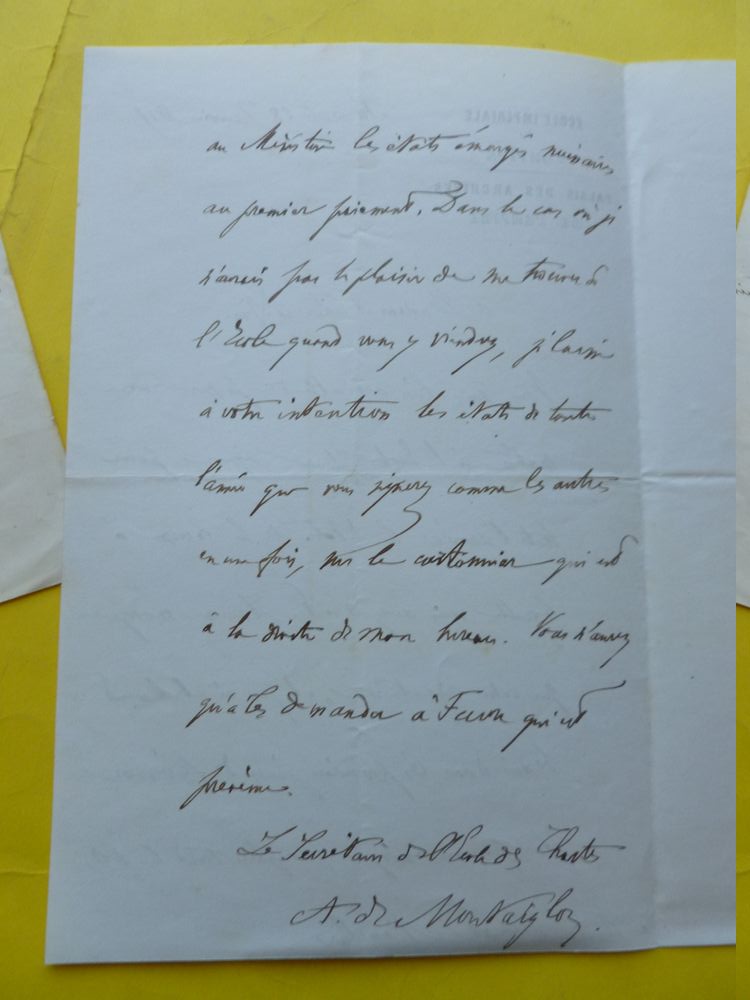 au Ministère les états émargés nécessaires
au premier paiement. Dans le cas où je
n'aurais pas le plaisir de me trouver à
l'Ecole quand vous y viendrez, je laisse
à votre intention les états de toute
l'année que vous signerez comme les autres
en une fois, sur le cartonnier qui est
à la droite de mon bureau. Vous n'aurez
qu'à les demander à Favre qui est
prévenu.
Le Secrétaire de l'Ecole des Chartes
A. de Montaiglon.